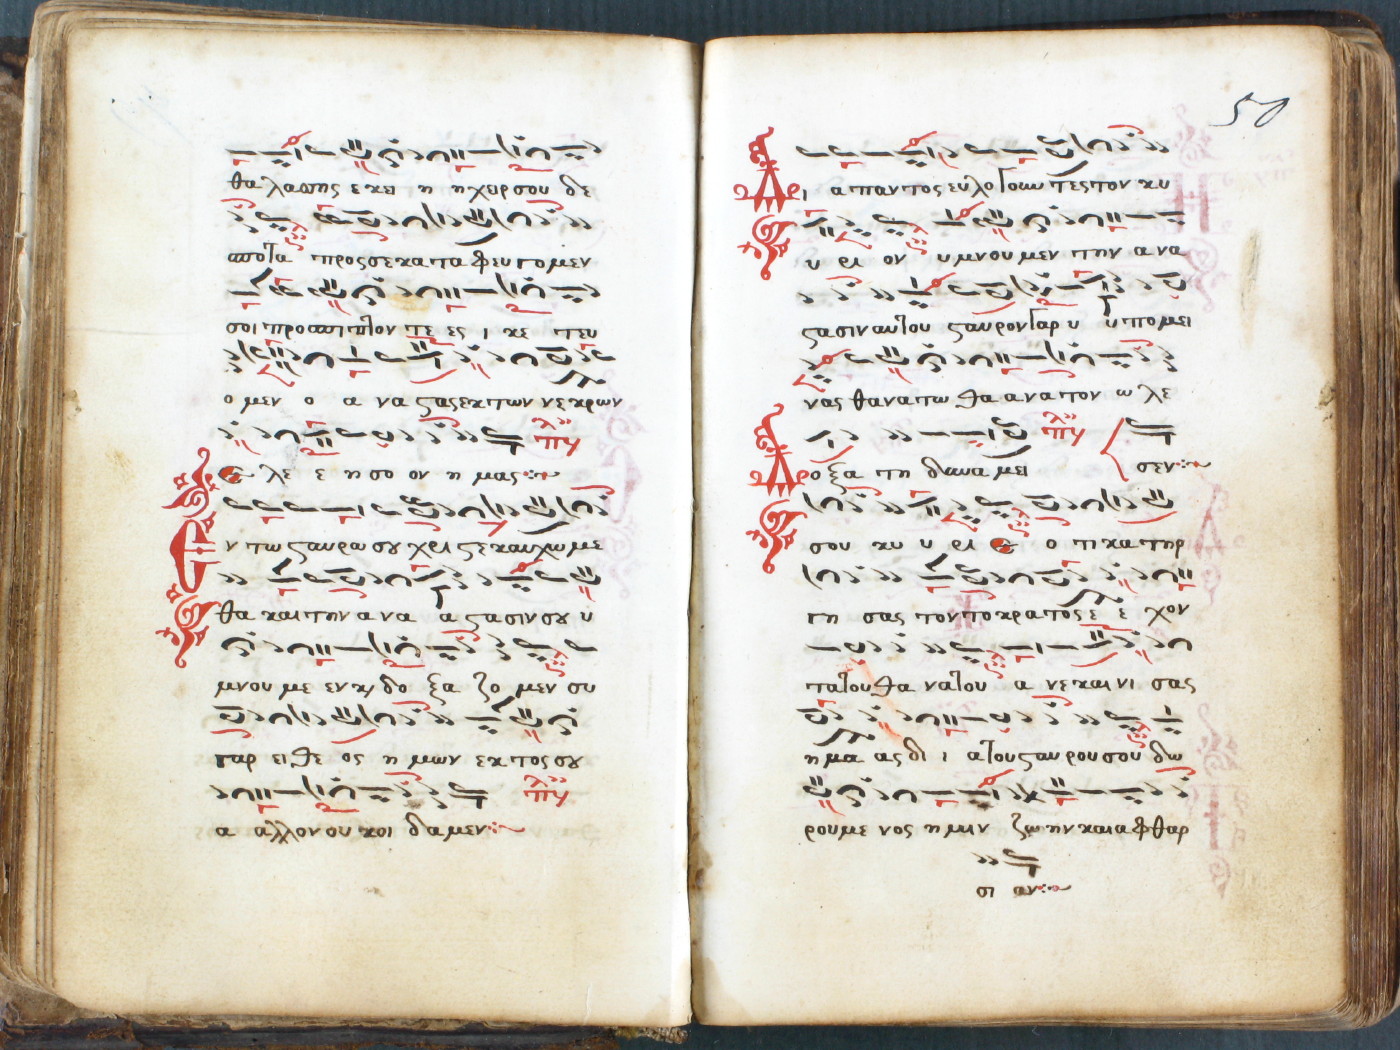 θα λασσης εκει η η χειρ σου δε
σποτα προς σε κα τα φευ γο μεν
σοι προσπιπτον τε ες ι κε τευ
ο μεν ο α να στας εκ των νε κρων
ε λε ε η σο ον η μας
Εν τω σταυρω σου χρι στε καυχωμε
θα και την α να α στα σιν σου υ
μνου με εν κ δο ξα ζο μεν συ
γαρ ει θε ος η μων εκτος σου
α αλλον ουκ οι δα μεν
50
Δι α παντος ευλογουντες τον κυ
υ ρι ον υ μνου μεν την α να
στασιν αυτου σταυρον γαρ υ υ πο μει
νας θανατω θα α να τον ω λε
σεν
Δο ξα τη δυνα μει
σου κυ υ ρι ε ο τι κα τηρ
γη σας τον το κρατος ε ε χον
τα του θα να του α νε και νι σας
η μα ας δι ι α του σταυρου σου δω
ρουμε νος η μιν ζω ην και α φθαρ
σι αν